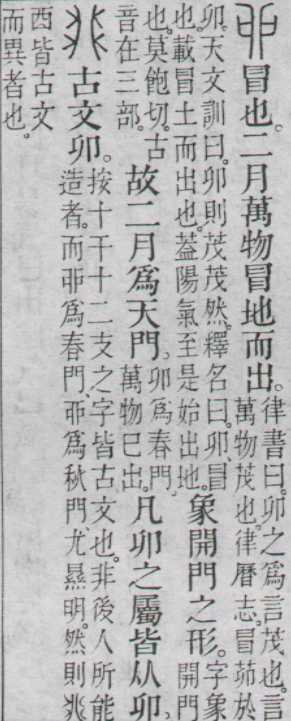 冒也。二月萬物冒地而出。律書曰。卯之爲言茂也。言
萬物茂也。律曆志。冒茆於
卯。天文訓曰。卯則茂茂然。釋名曰。卯、冒
也。載冒土而出也。葢陽氣至是始出地。象開門之形。字象
開門
也。莫飽切。古
音在三部。故二月爲天門。卯爲春門。
萬物已出。凡卯之屬皆从卯。
古文卯。按十干十二支之字皆古文也。非後人所能
造者。而戼爲春門、丣爲秋門、尤㬎明。然則
西皆古文
而異者也。